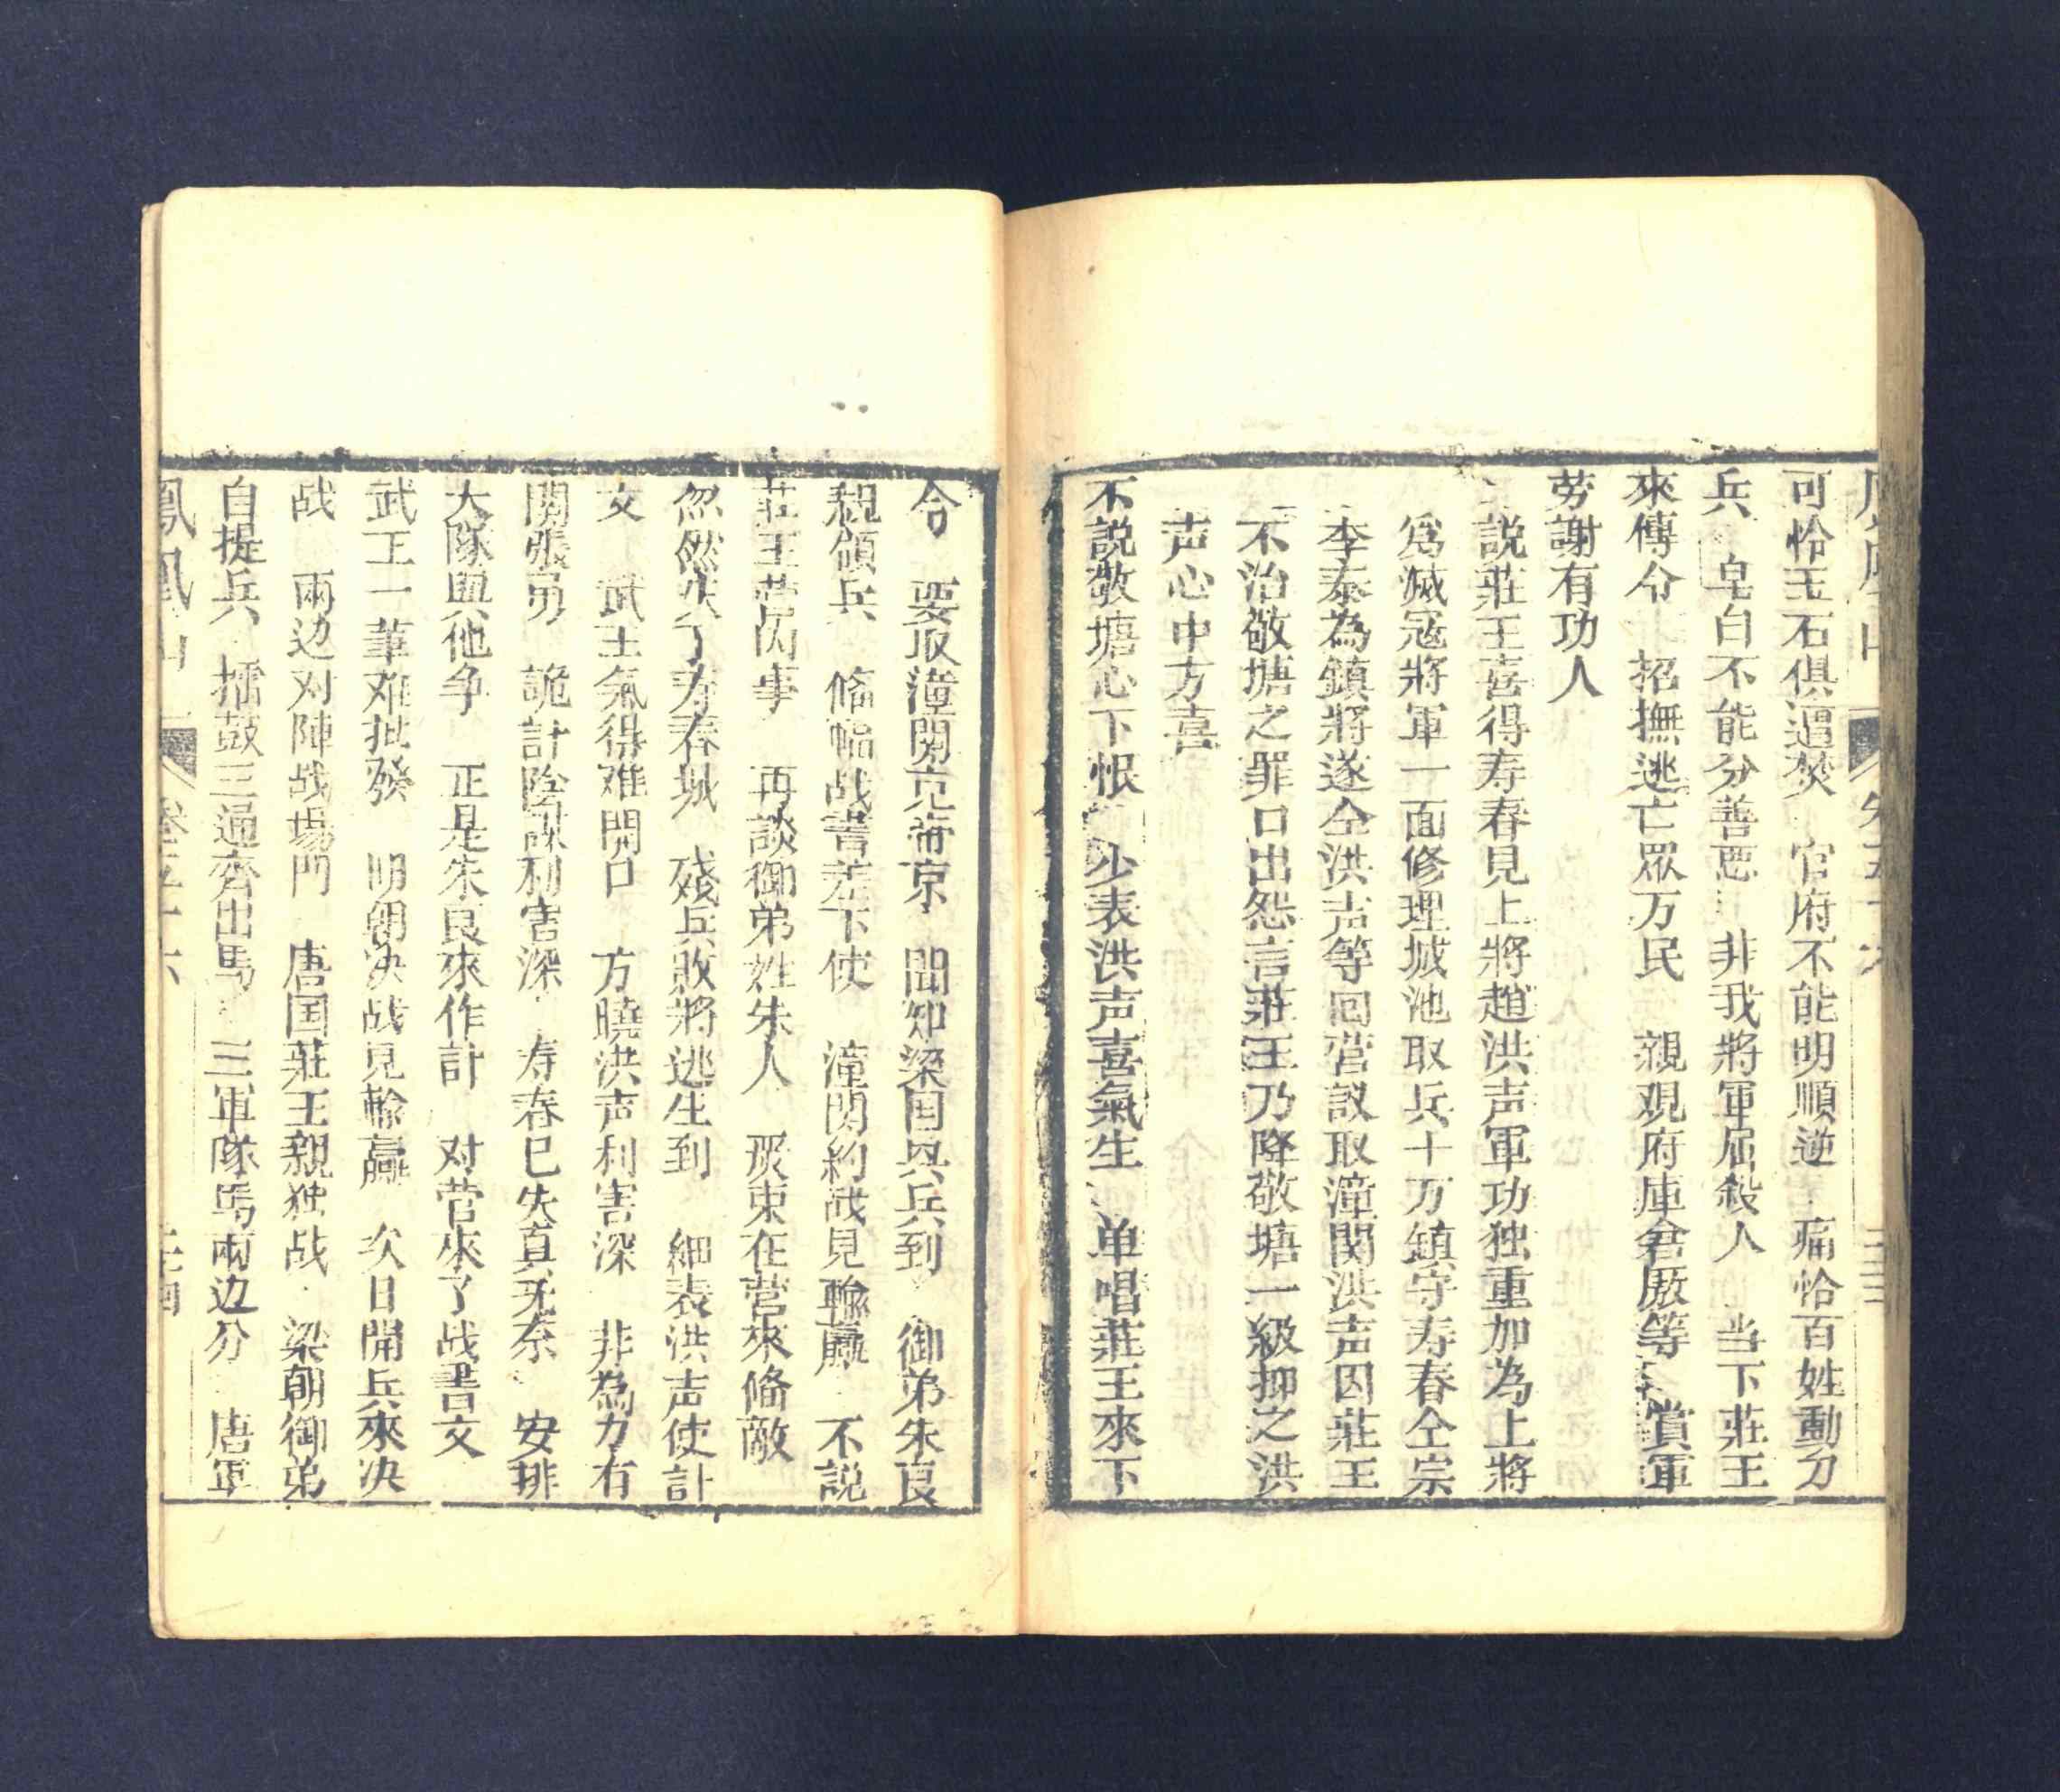 可怜玉石俱逼焚 官府不能明順逆 痛恰百姓動刀
兵 皂白不能分善惡 非我將軍屈殺人 当下莊王
來傳令 招撫逃亡眾万民 親观府庫倉廒等 賞軍
劳謝有功人
説莊王喜得寿春見上將趙洪声軍功独重加為上將
為滅冦將軍一面修理城池取兵十万鎮守寿春仝宗
李泰為鎮將遂仝洪声等回营議取潼関洪声因莊王
不治敬塘之罪口出怨言莊王乃降敬塘一級抑之洪
声心中方喜
不説敬塘心下恨 少表洪声喜氣生 单唱莊王來下
令 要取潼関克帝京 聞知梁国兵兵到 御弟朱良
親領兵 俻幅战書差下使 潼関約战見輸贏 不説
莊王营内事 再談御弟姓朱人 聚束在营來俻敵
忽然失了寿春城 殘兵敗將逃生到 細表洪声使計
文 武王氣得难開口 方曉洪声利害深 非為力有
関張勇 詭計陰謀利害深 寿春已失真无奈 安排
大隊與他争 正是朱良來作計 对营來了战書文
武王一筆难批發 明朝决战見輸贏 次日開兵來决
战 兩边对陣战場門 唐国莊王親独战 梁朝御弟
自提兵 擂鼓三通齊出馬 三軍隊馬兩边分 唐軍
鳳凰山 卷五十六